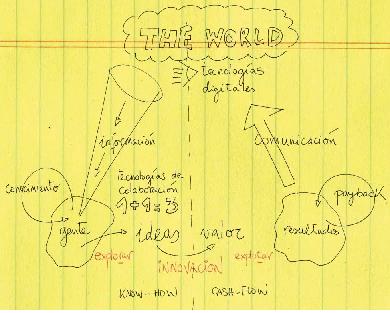 THE WORLD
tecnologías
digitales
información
comunicación
tecnologías de
colaboración
1+1=3
conocimiento
payback
gente
ideas
valor
resultados
explorar
explotar
INNOVACIÓN
KNOW-HOW
CASH-FLOW